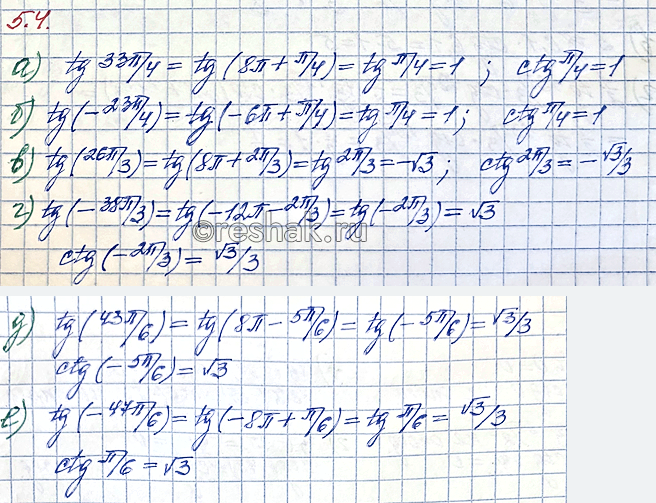 5.4.
а) tg 33π/4 = tg (8π + π/4) = tg π/4 = 1 ; ctg π/4 = 1
б) tg (-23π/4) = tg (-6π + π/4) = tg π/4 = 1; ctg π/4 = 1
в) tg (26π/3) = tg (8π + 2π/3) = tg 2π/3 = -√3 ; ctg 2π/3 = -√3/3
г) tg (-38π/3) = tg (-12π - 2π/3) = tg (-2π/3) = √3
©reshak.ru
ctg (-2π/3) = √3/3
д) tg (43π/6) = tg (8π - 5π/6) = tg (-5π/6) = √3/3
ctg (-5π/6) = √3
е) tg (-47π/6) = tg (-8π + π/6) = tg π/6 = √3/3
ctg π/6 = √3